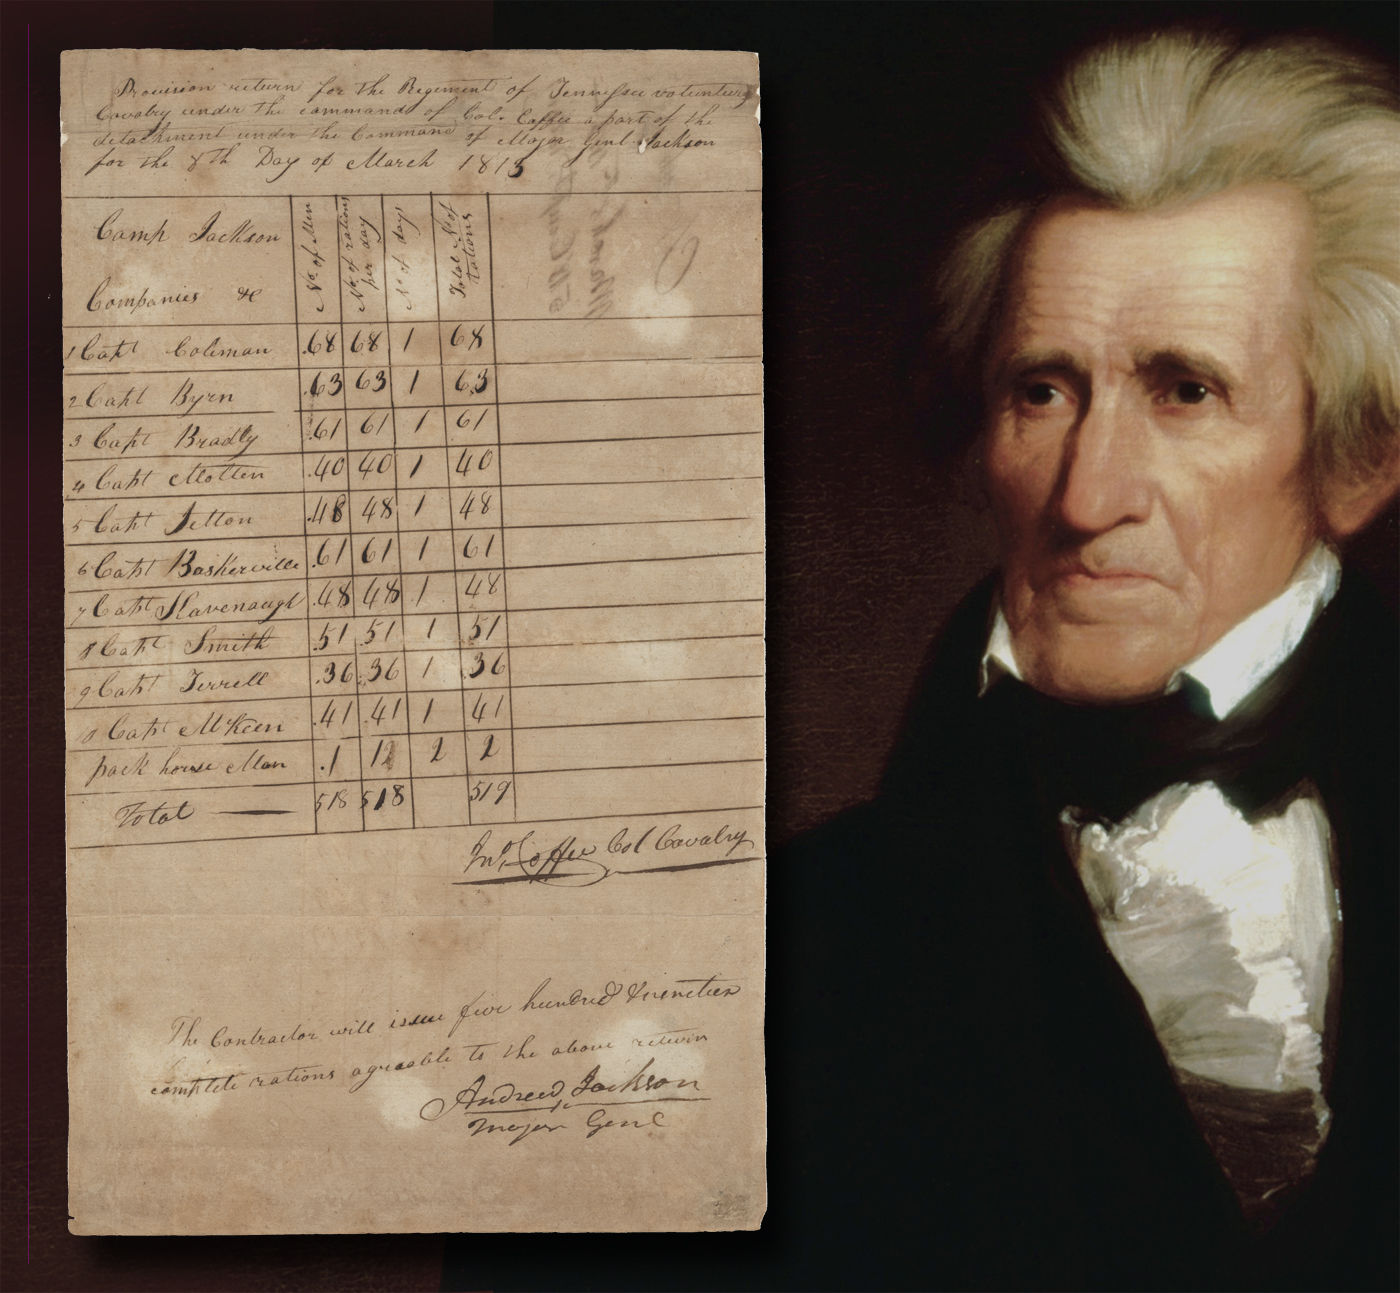 Provision return for the Regiment of Tennessee voluntury
Cavalry under the command of Col. Coffee a part of the
detachment under the Command of Major Genl Jackson
for the 8th Day of March 1813
Camp Jackson
Companies &c
No of Men
No of rations per day
No of days
Total No of rations
1 Capt Coleman .68 68 1 68
2 Capt Byrn .63 63 1 63
3 Capt Bradly .61 61 1 61
4 Capt Motten .40 40 1 40
5 Capt Jetton .48 48 1 48
6 Capt Baskerville .61 61 1 61
7 Capt Kavenaugh .48 48 1 48
8 Capt Smith .51 51 1 51
9 Capt Terrell .36 .36 1 .36
10 Capt McKeen .41 .41 1 41
pack horse Man .1 1 2 2
Total 518 518 519
Jno. Coffee Col Cavalry
The Contractor will issue five hundred & nineteen
complete rations agreable to the above return
Andrew Jackson
Major Genl